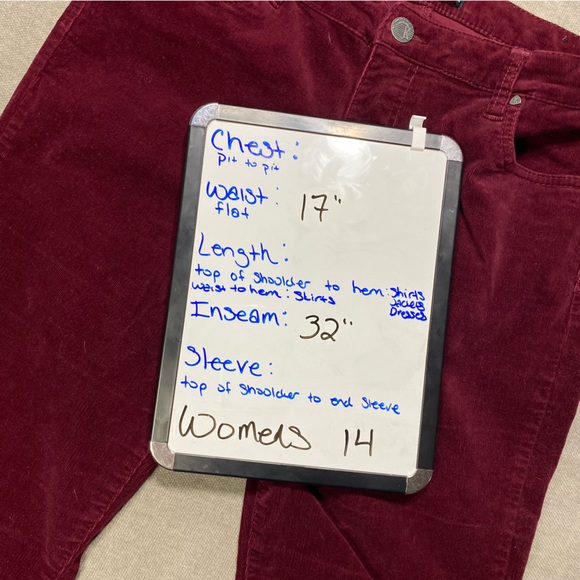 Chest:
pit to pit
Waist: 17"
flat
Length:
top of shoulder to hem: Shirts
Jackets
Dresses
waist to hem: Skirts
Inseam: 32"
Sleeve:
top of shoolder to end sleeve
Womens 14